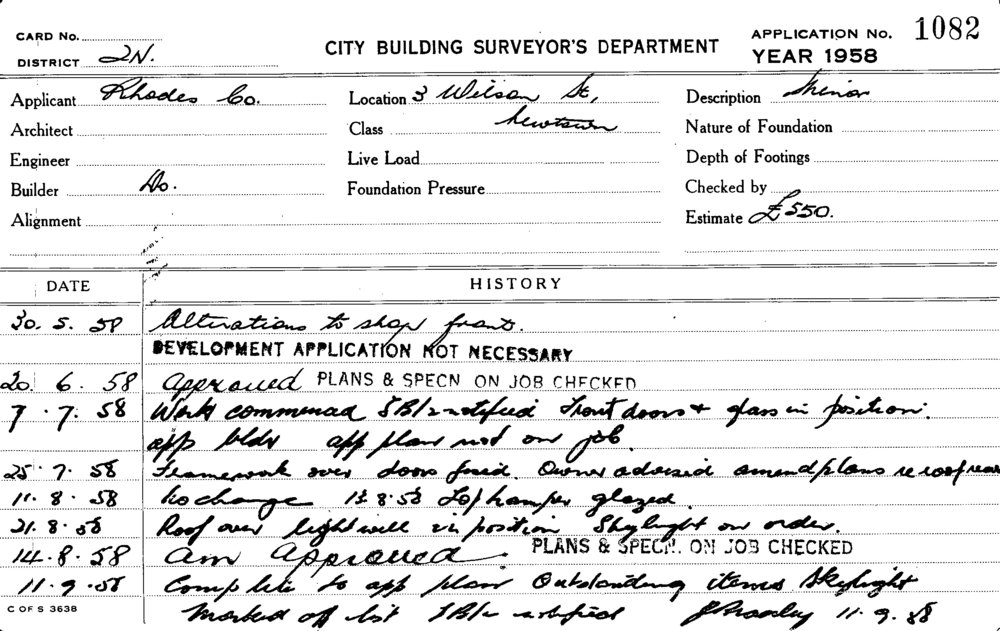 CARD No.
DISTRICT 2N.
CITY BUILDING SURVEYOR'S DEPARTMENT
APPLICATION No. 1082
YEAR 1958
Applicant Rhodes Co.
Location 3 Wilson St,
Description Minor
Architect
Class Newtown
Nature of Foundation
Engineer
Live Load
Depth of Footings
Builder Do.
Foundation Pressure
Checked by
Alignment
Estimate £550.
DATE HISTORY
30. 5. 58 Alterations to shop front.
DEVELOPMENT APPLICATION NOT NECESSARY
20. 6. 58 Approved PLANS & SPECN ON JOB CHECKED
7. 7. 58 Work commenced notified Front doors + glass in position.
app bldr app plan not on job.
25. 7. 58 Framework over doors fixed. Owner advised amend plans re roof rear
11. 8. 58 No change 13.8.58 Tophamper glazed.
21. 8. 58 Roof over light well in position Skylight on order.
14. 8. 58 Am Approved. PLANS & SPECN. ON JOB CHECKED
11. 9. 58 Complete to app plan Outstanding items Skylight
Marked off list notified 11. 9. 58
C OF S 3638